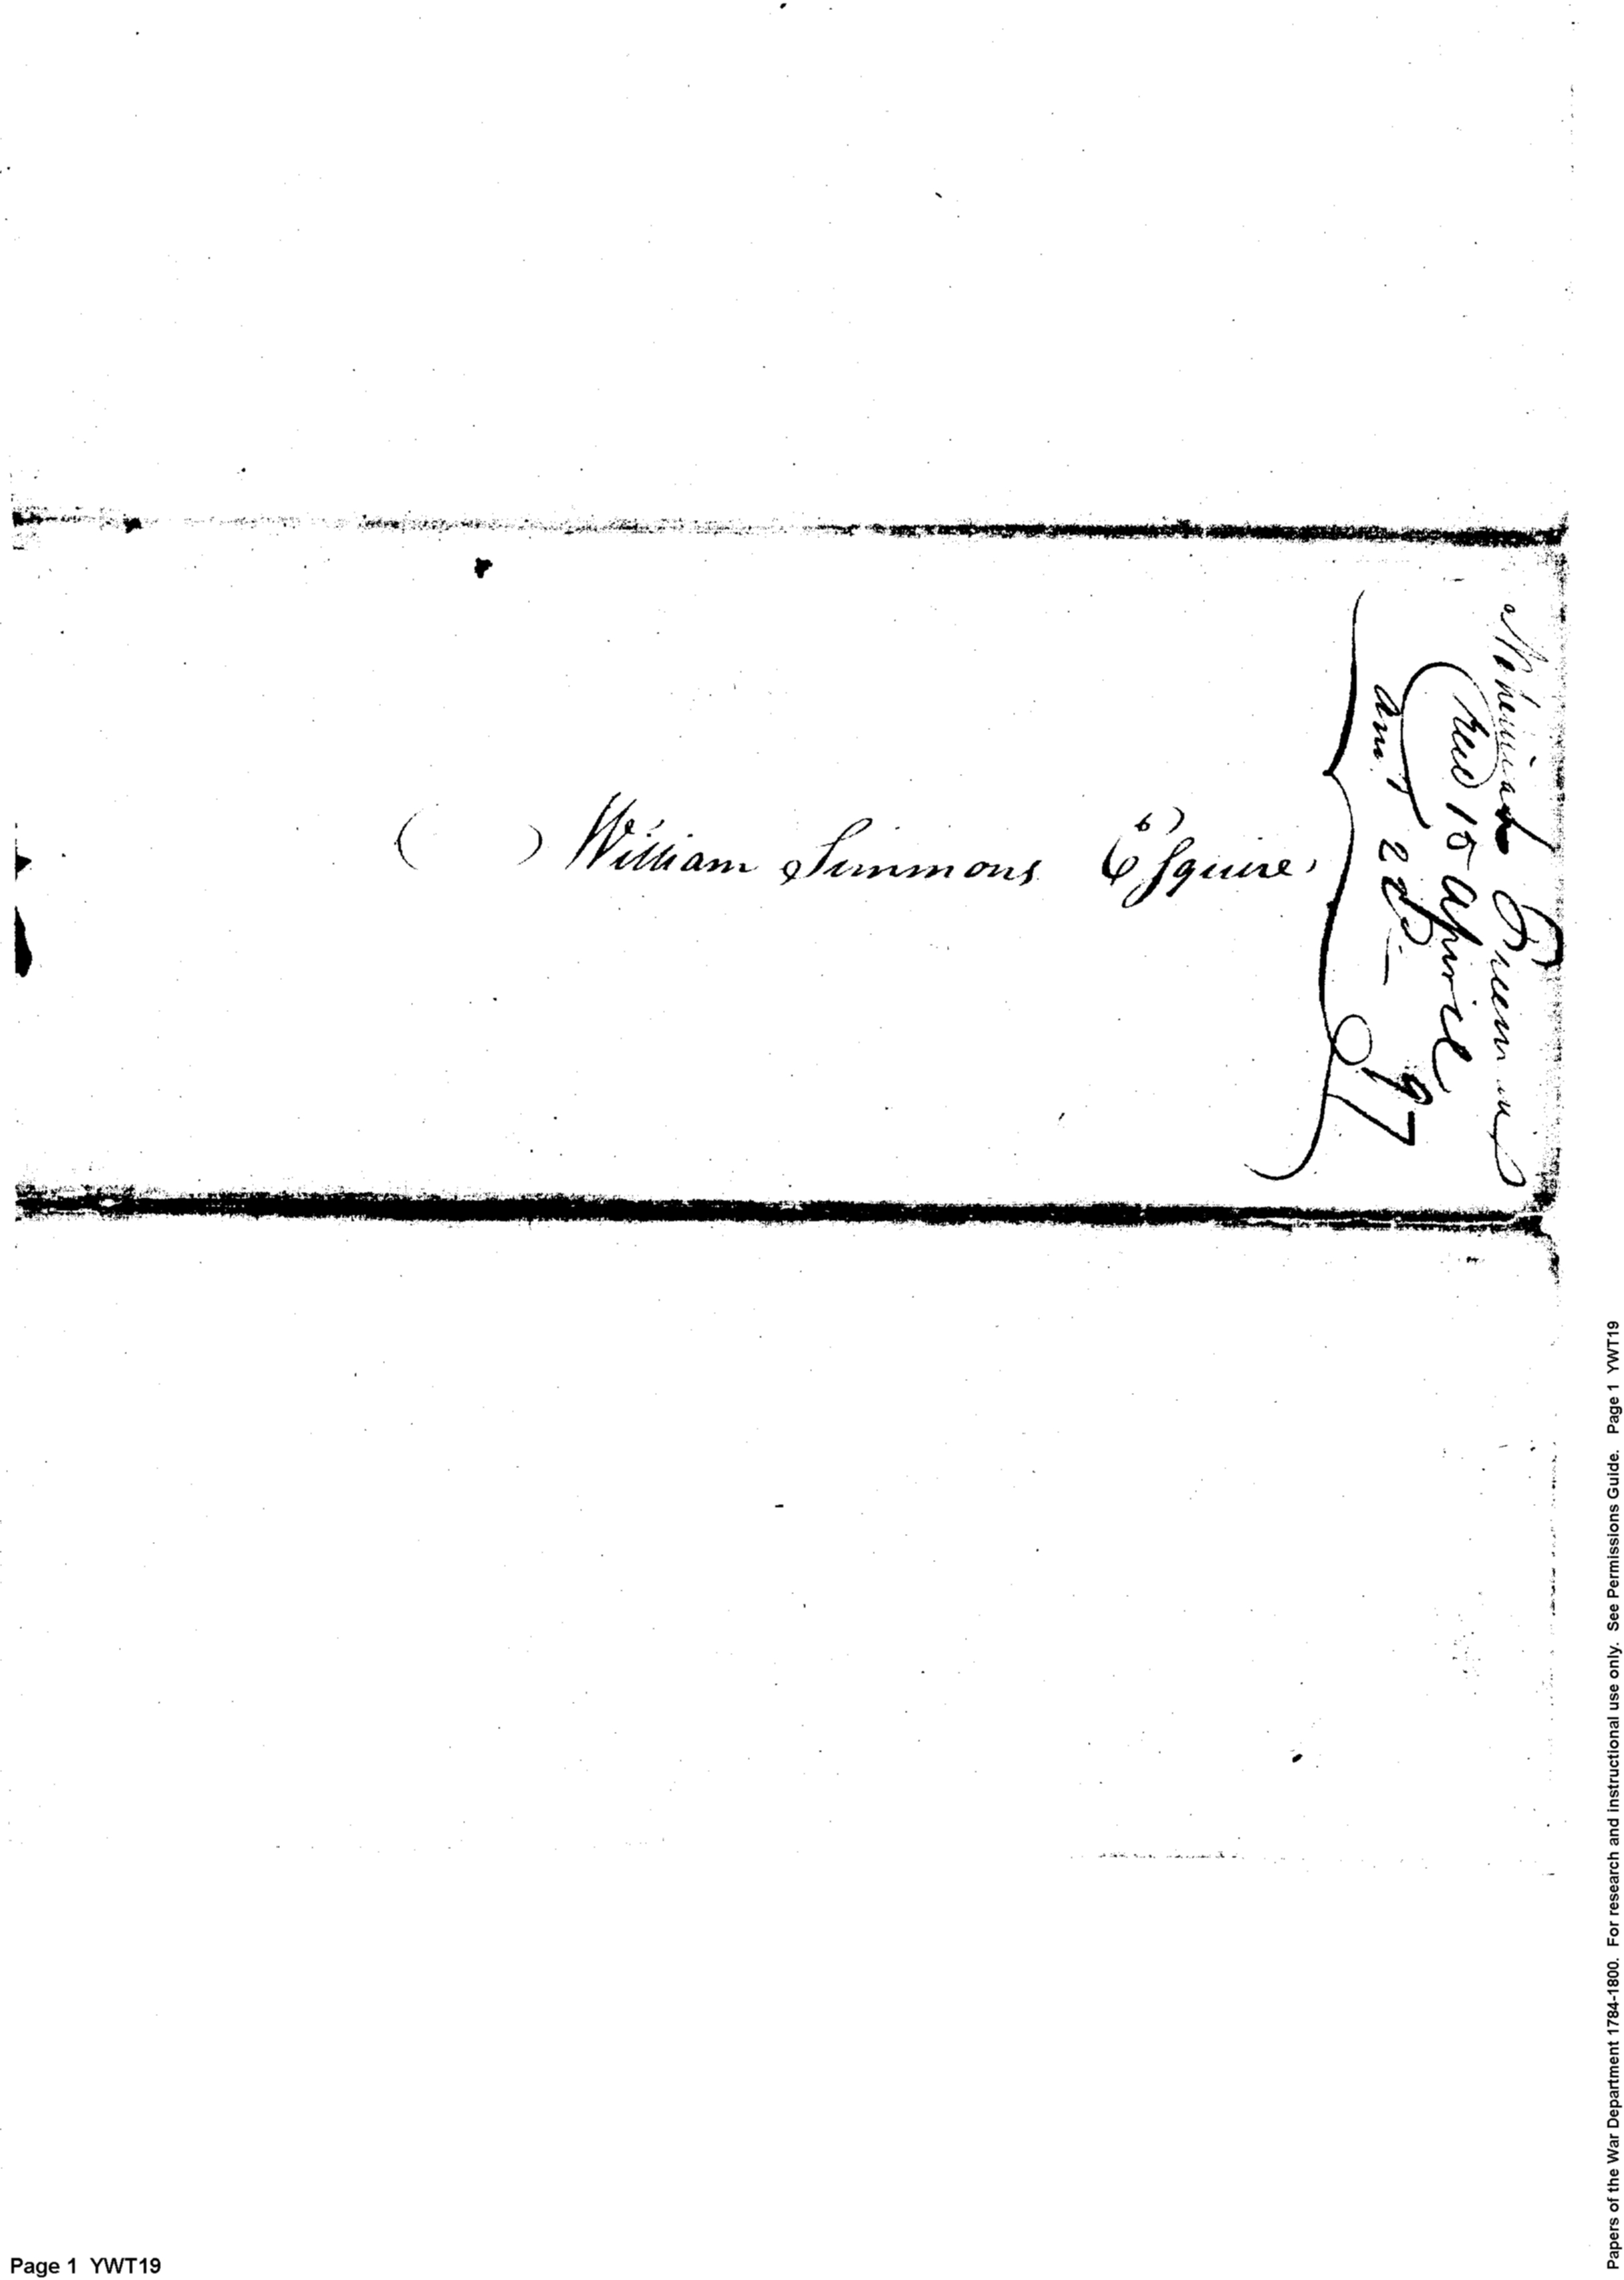 William Simmons Esquire
Nehemiah Freeman
Recd 15 April
Ansd 28 — 97
Page 1 YWT19
Papers of the War Department 1784-1800. For research and instructional use only. See Permissions Guide. Page 1 YWT19